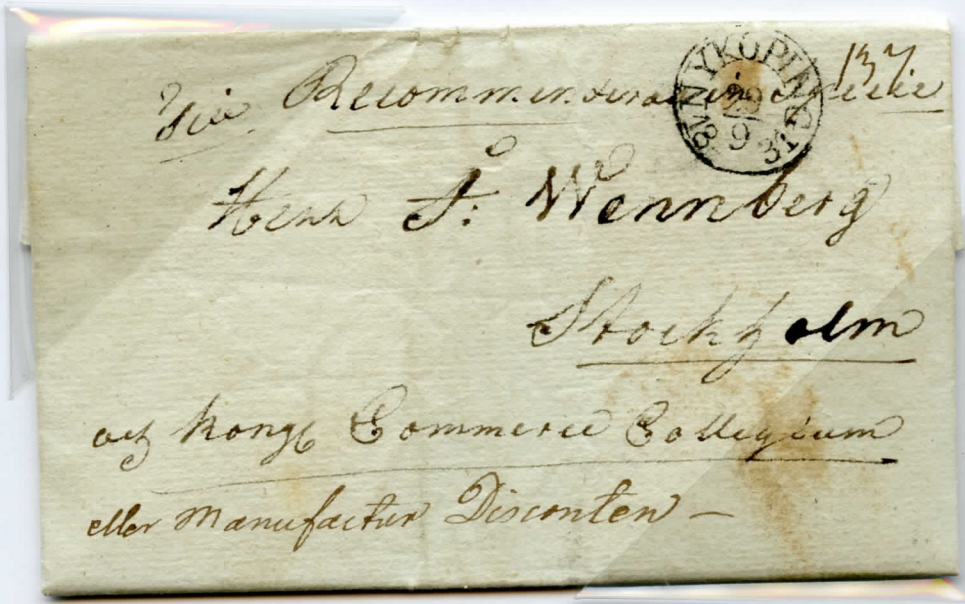 137
NYKÖPING
29
9
1831
Herr J: Wennberg
Stockholm
och Kongl Commerce Collegium
eller Manufactur Disconten –